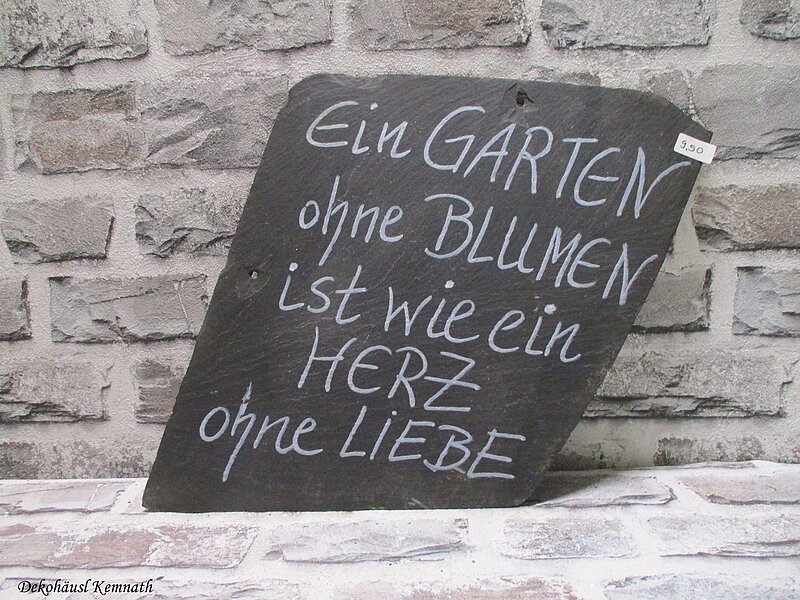 Ein GARTEN
9,50
ohne BLUMEN
ist wie ein
HERZ
ohne LiEBE
Dekohäusl Kemnath